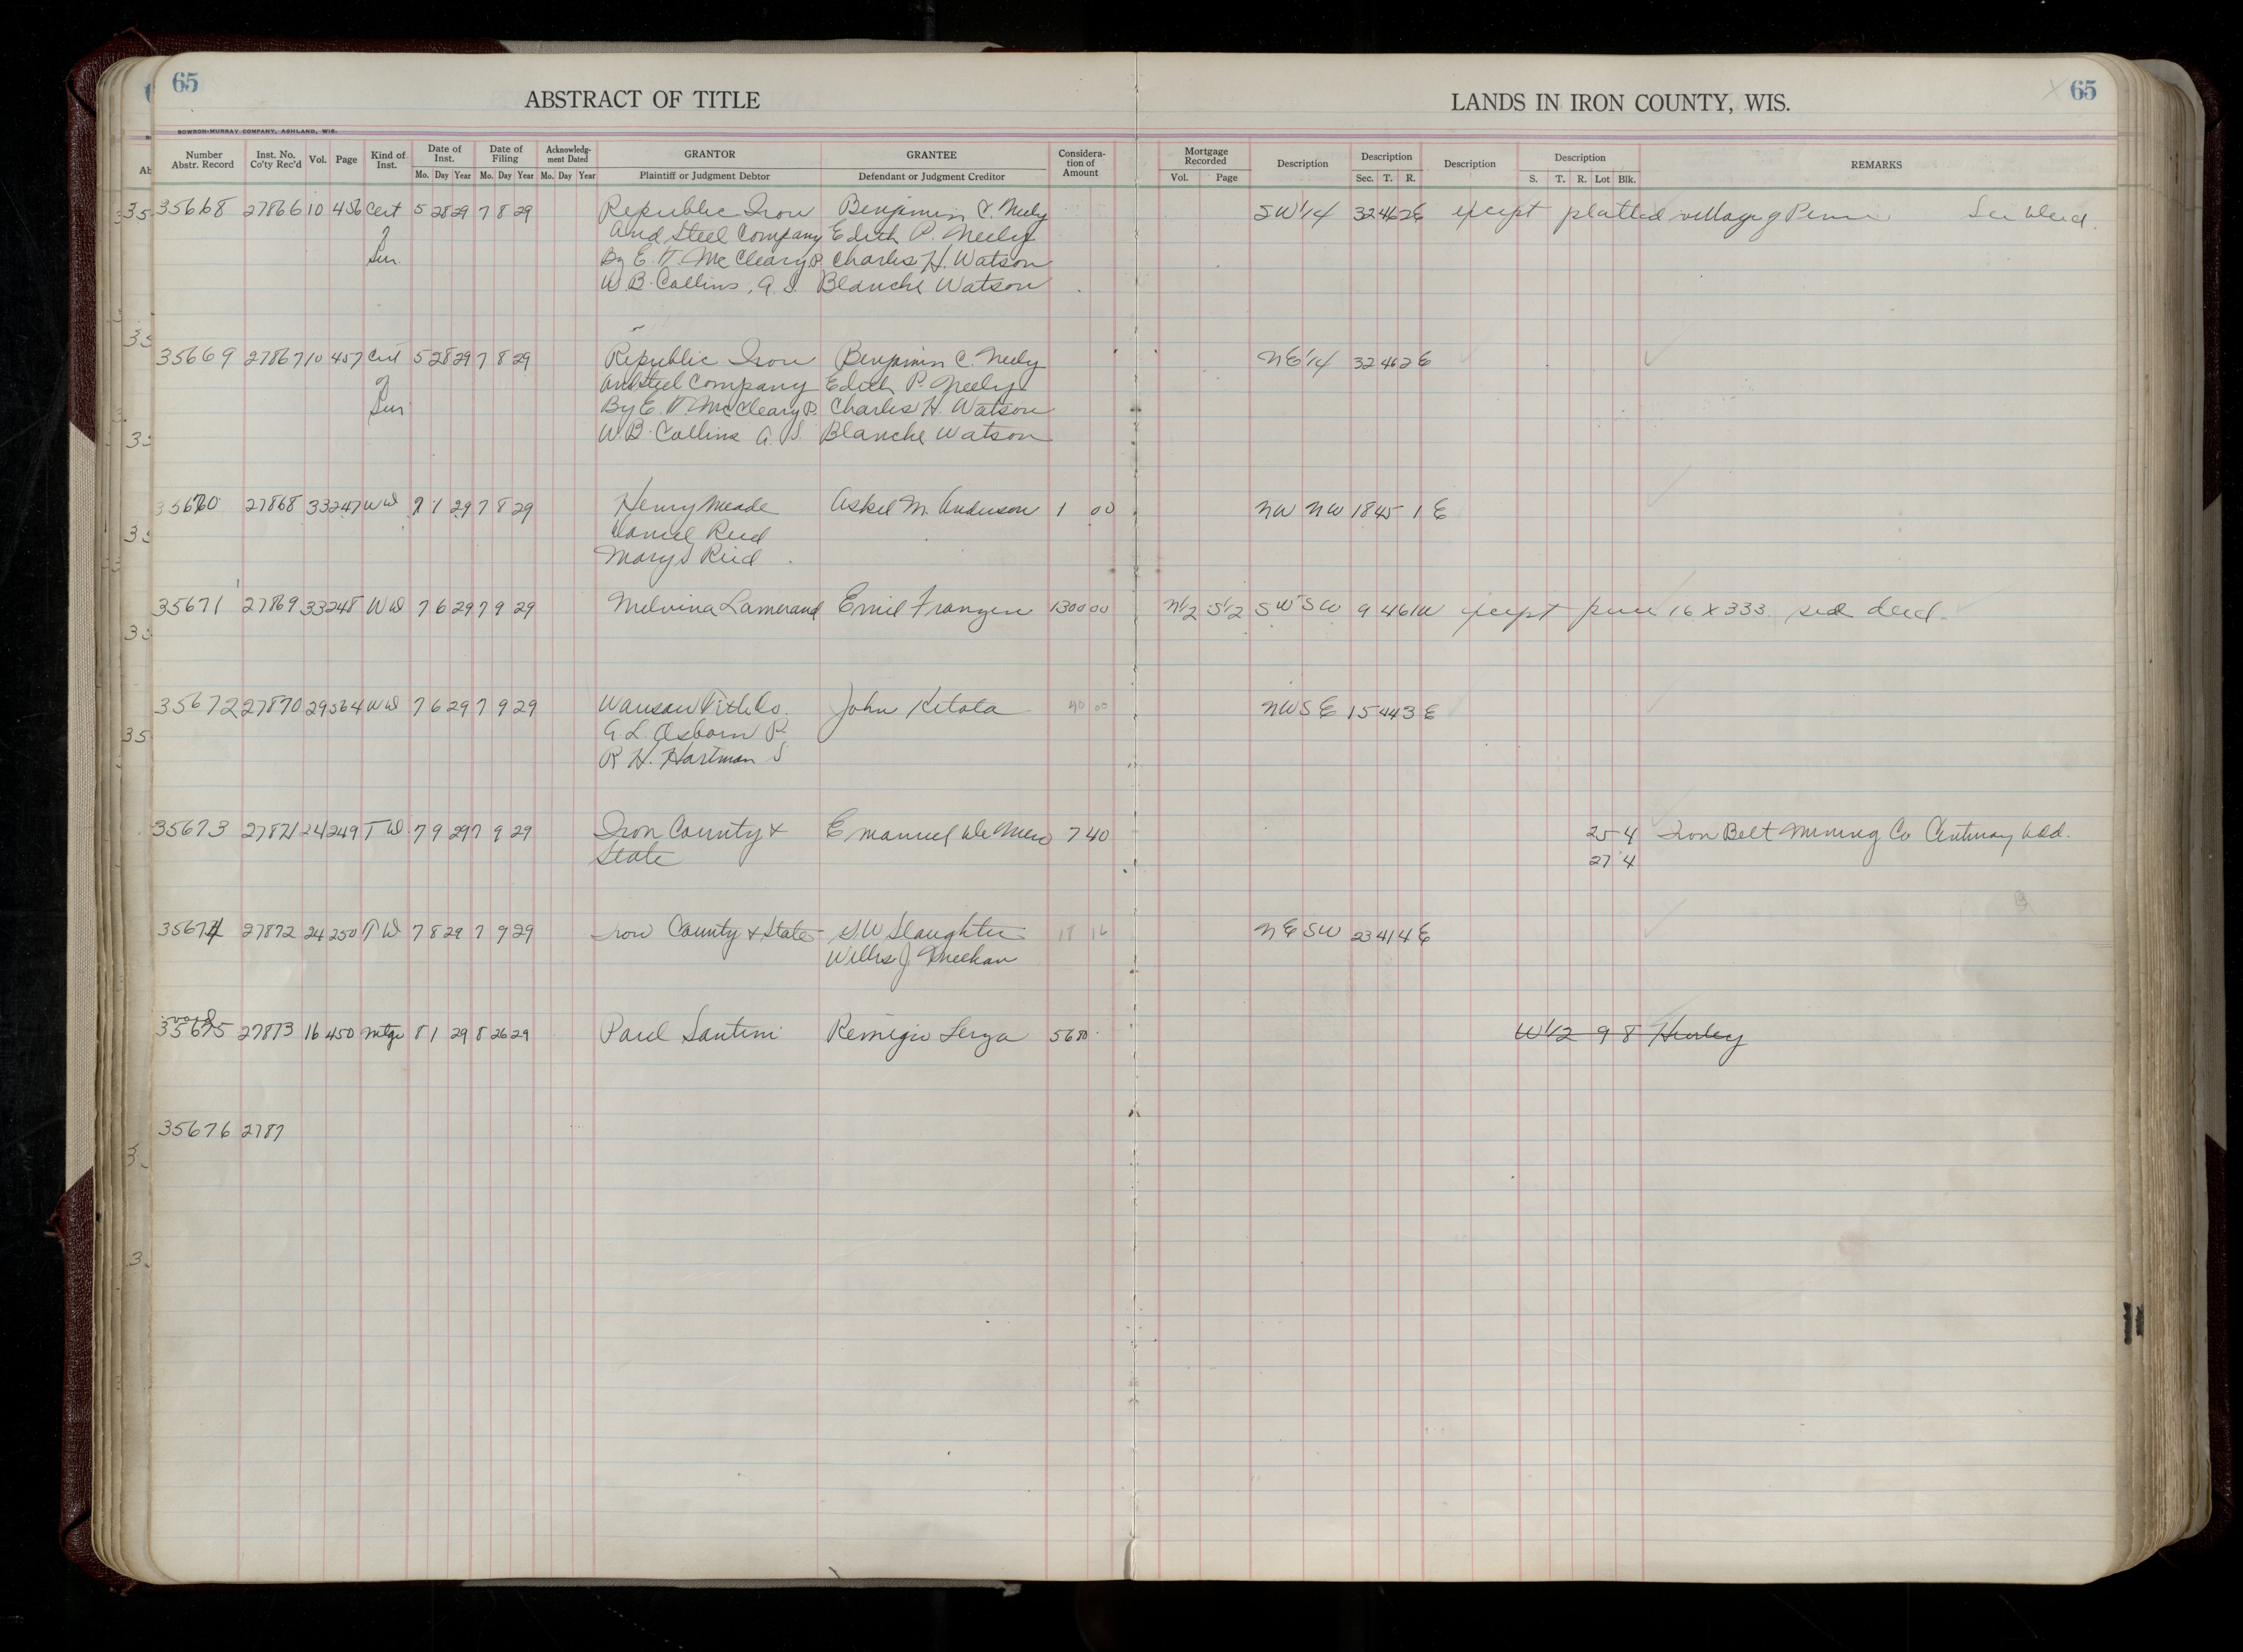 65
ABSTRACT OF TITLE
LANDS IN IRON COUNTY, WIS.
65
BOWRON-MURRAY COMPANY, ASHLAND, WIS.
Number Abstr. Record | Inst. No. Co'ty Rec'd | Vol. | Page | Kind of Inst. | Date of Inst. Mo. Day Year | Date of Filing Mo. Day Year | Acknowledgment Dated Mo. Day Year | GRANTOR Plaintiff or Judgment Debtor | GRANTEE Defendant or Judgment Creditor | Consideration of Amount | Mortgage Recorded Vol. Page | Description | Description Sec. T. R. | Description | Description S. T. R. Lot Blk. | REMARKS
35668 27866 10 456 Cert 5 28 29 7 8 29 Republic Iron Benjamin C. Neely SW 1/4 32 46 2E except platted village of Pence See Deed.
of and Steel Company Edith P. Neely
Sur. By E. T. McCleary P. Charles H. Watson
W. B. Collins, A. S. Blanche Watson
35669 27867 10 457 Cert 5 28 29 7 8 29 Republic Iron Benjamin C. Neely NE 1/4 32 46 2E
of and Steel Company Edith P. Neely
Sur By E. T. McCleary P. Charles H. Watson
W. B. Collins A. S. Blanche Watson
35670 27868 33 247 WD 7 1 29 7 8 29 Henry Meade Askel M. Anderson 1 00 NW NW 18 45 1 E
Daniel Reid
Mary S Reid
35671 27869 33 248 WD 7 6 29 7 9 29 Melvina Lamerand Emil Franzen 1300 00 N1/2 S1/2 SW SW 9 46 1W except piece 16 X 333 see deed.
35672 27870 29 564 WD 7 6 29 7 9 29 Wausau Title Co. John Ketola 40 00 NW SE 15 44 3 E
G. L. Osborn P.
R. H. Hartman S
35673 27871 24 249 TD 7 9 29 7 9 29 Iron County & Emanuel De Meio 7 40 25 4 Iron Belt Mining Co Century Add.
State 27 4
35674 27872 24 250 TD 7 8 29 7 9 29 Iron County & State S. W Slaughter 18 16 NE SW 23 41 4 E
Willis J. Meehan
void
35675 27873 16 450 Mtge 8 1 29 8 26 29 Paul Santini Remigio Lerza 5680 W1/2 9 8 Hurley
35676 2787